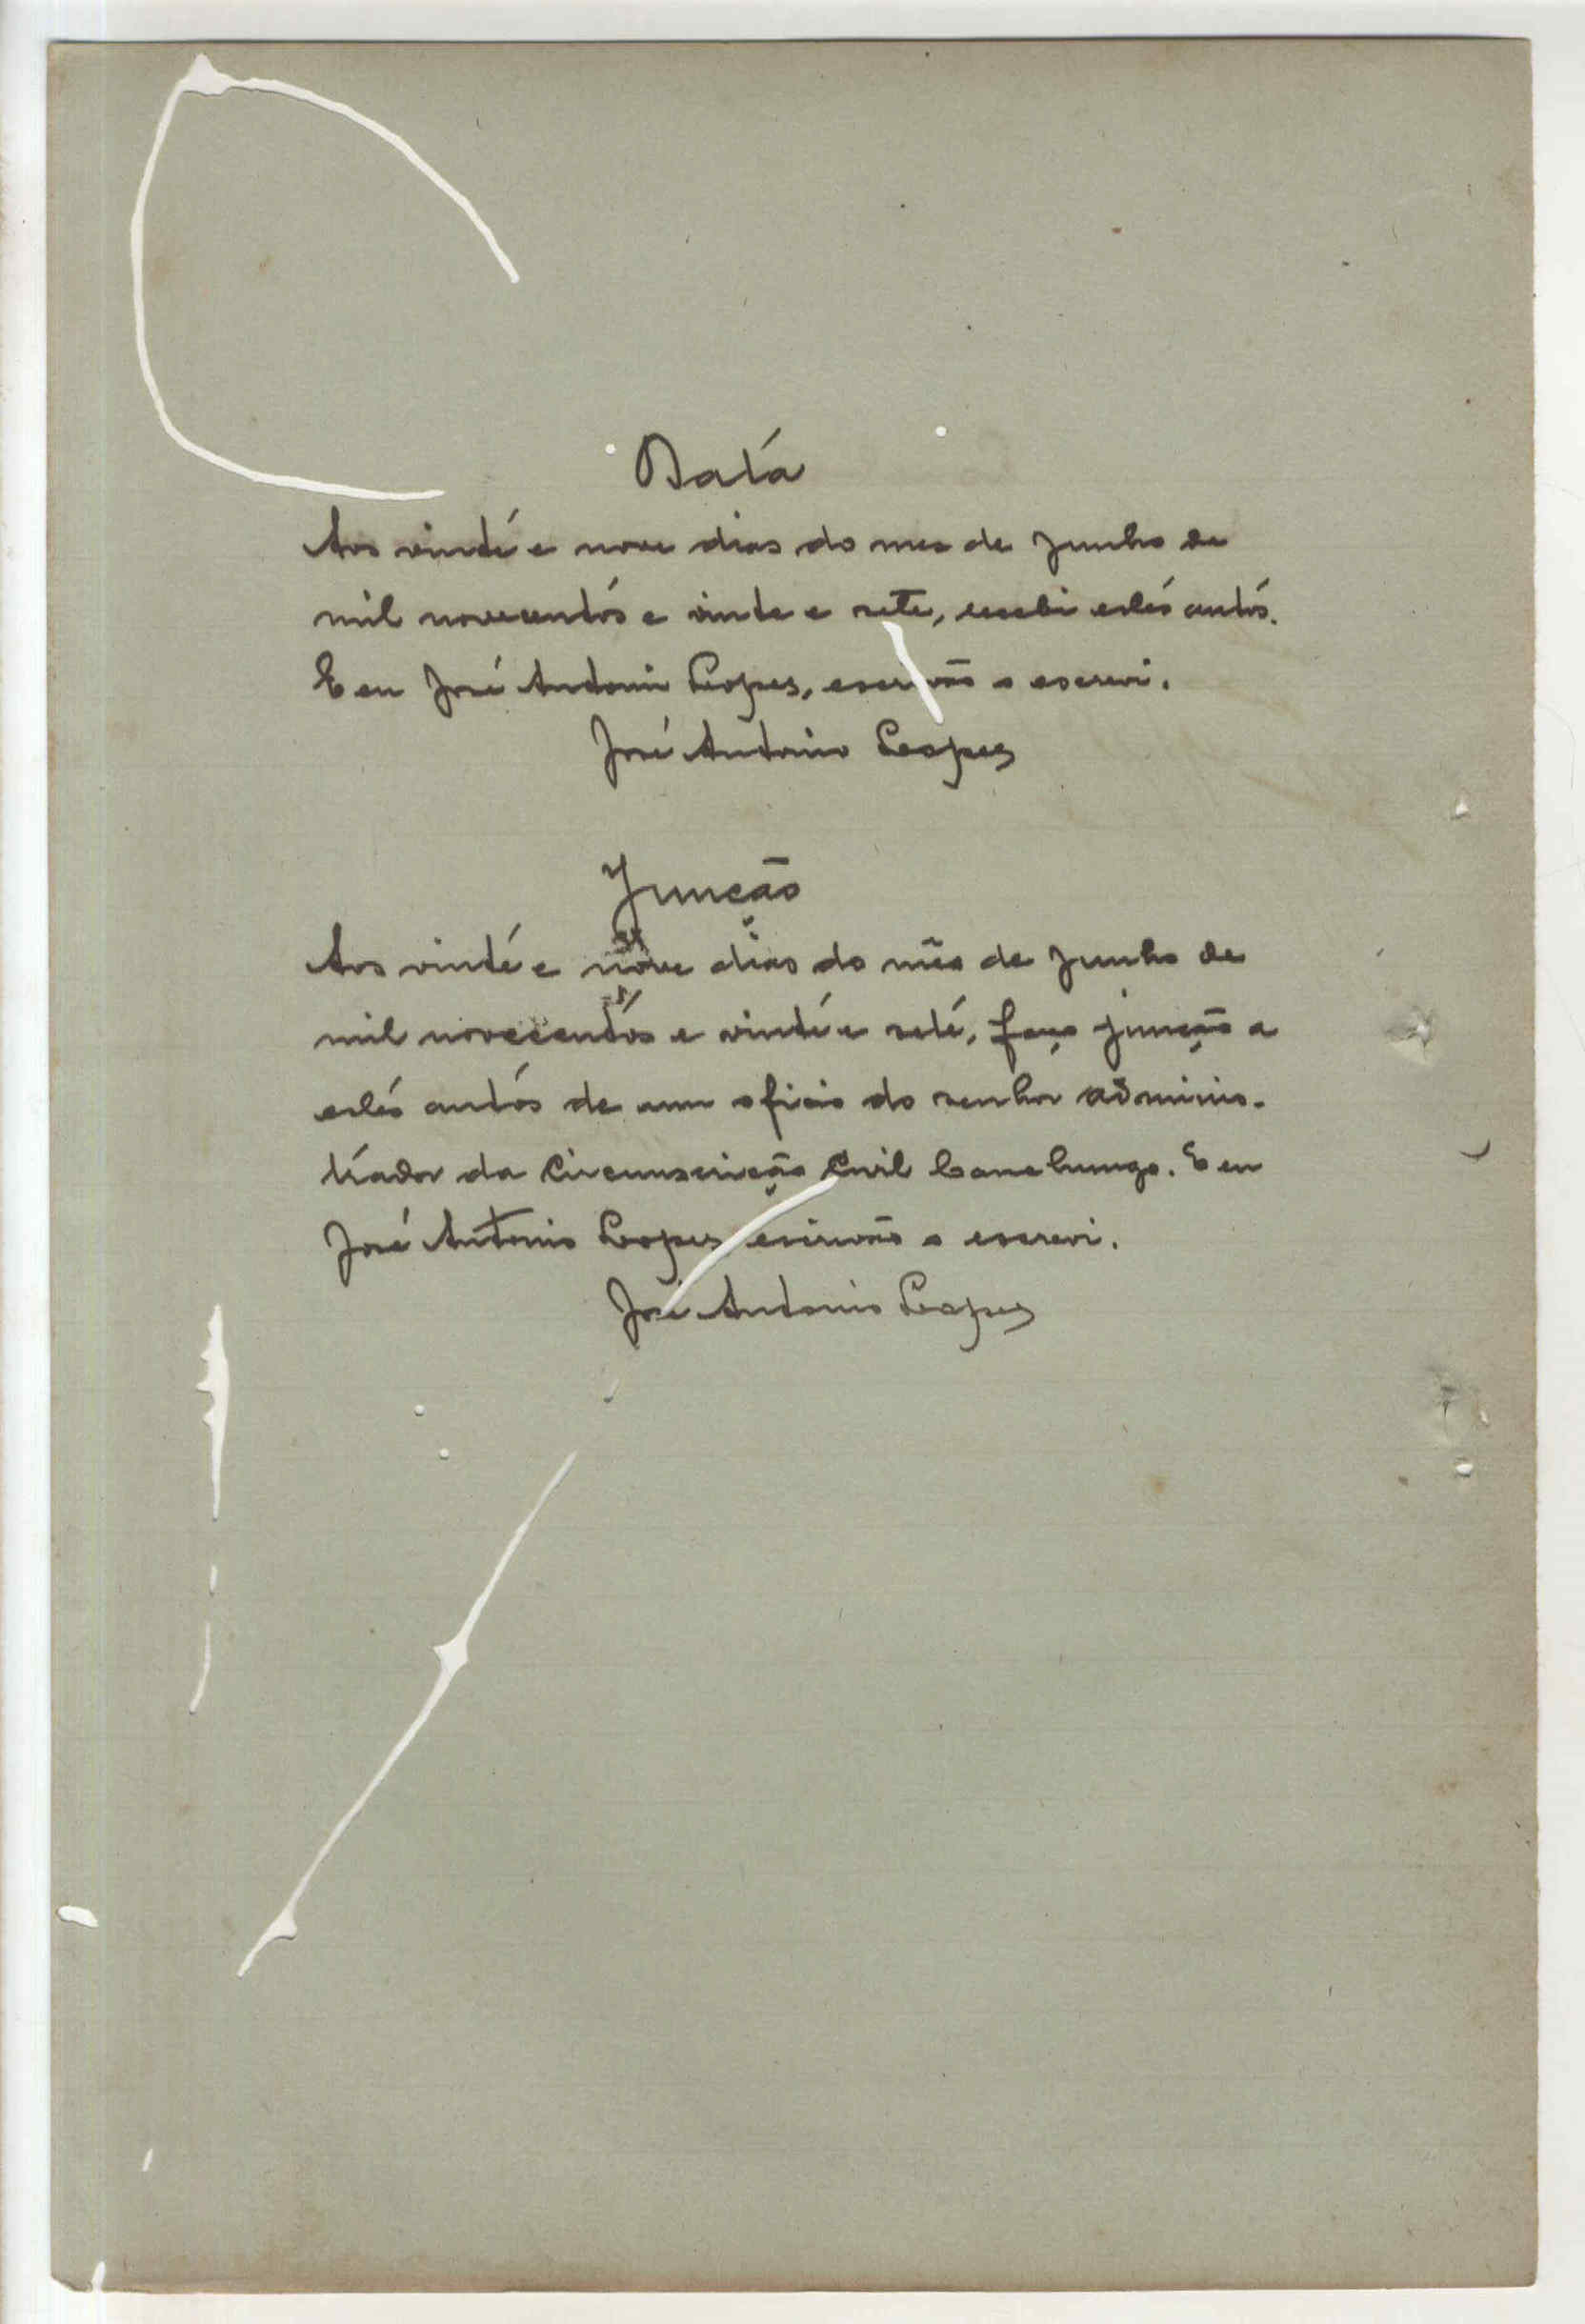 Data
Aos vinte e nove dias do mes de Junho de
mil novecentos e vinte e sete, recebi estes autos.
E eu José Antonio Lopes, escrivão o escrevi.
José Antonio Lopes
Junção
Aos vinte e nove dias do mês de Junho de
mil novecentos e vinte e sete, faço junção a
estes autos de um oficio do senhor adminis-
trador da Circunscrição Civil Canchungo. E eu
José Antonio Lopes escrivão o escrevi.
José Antonio Lopes